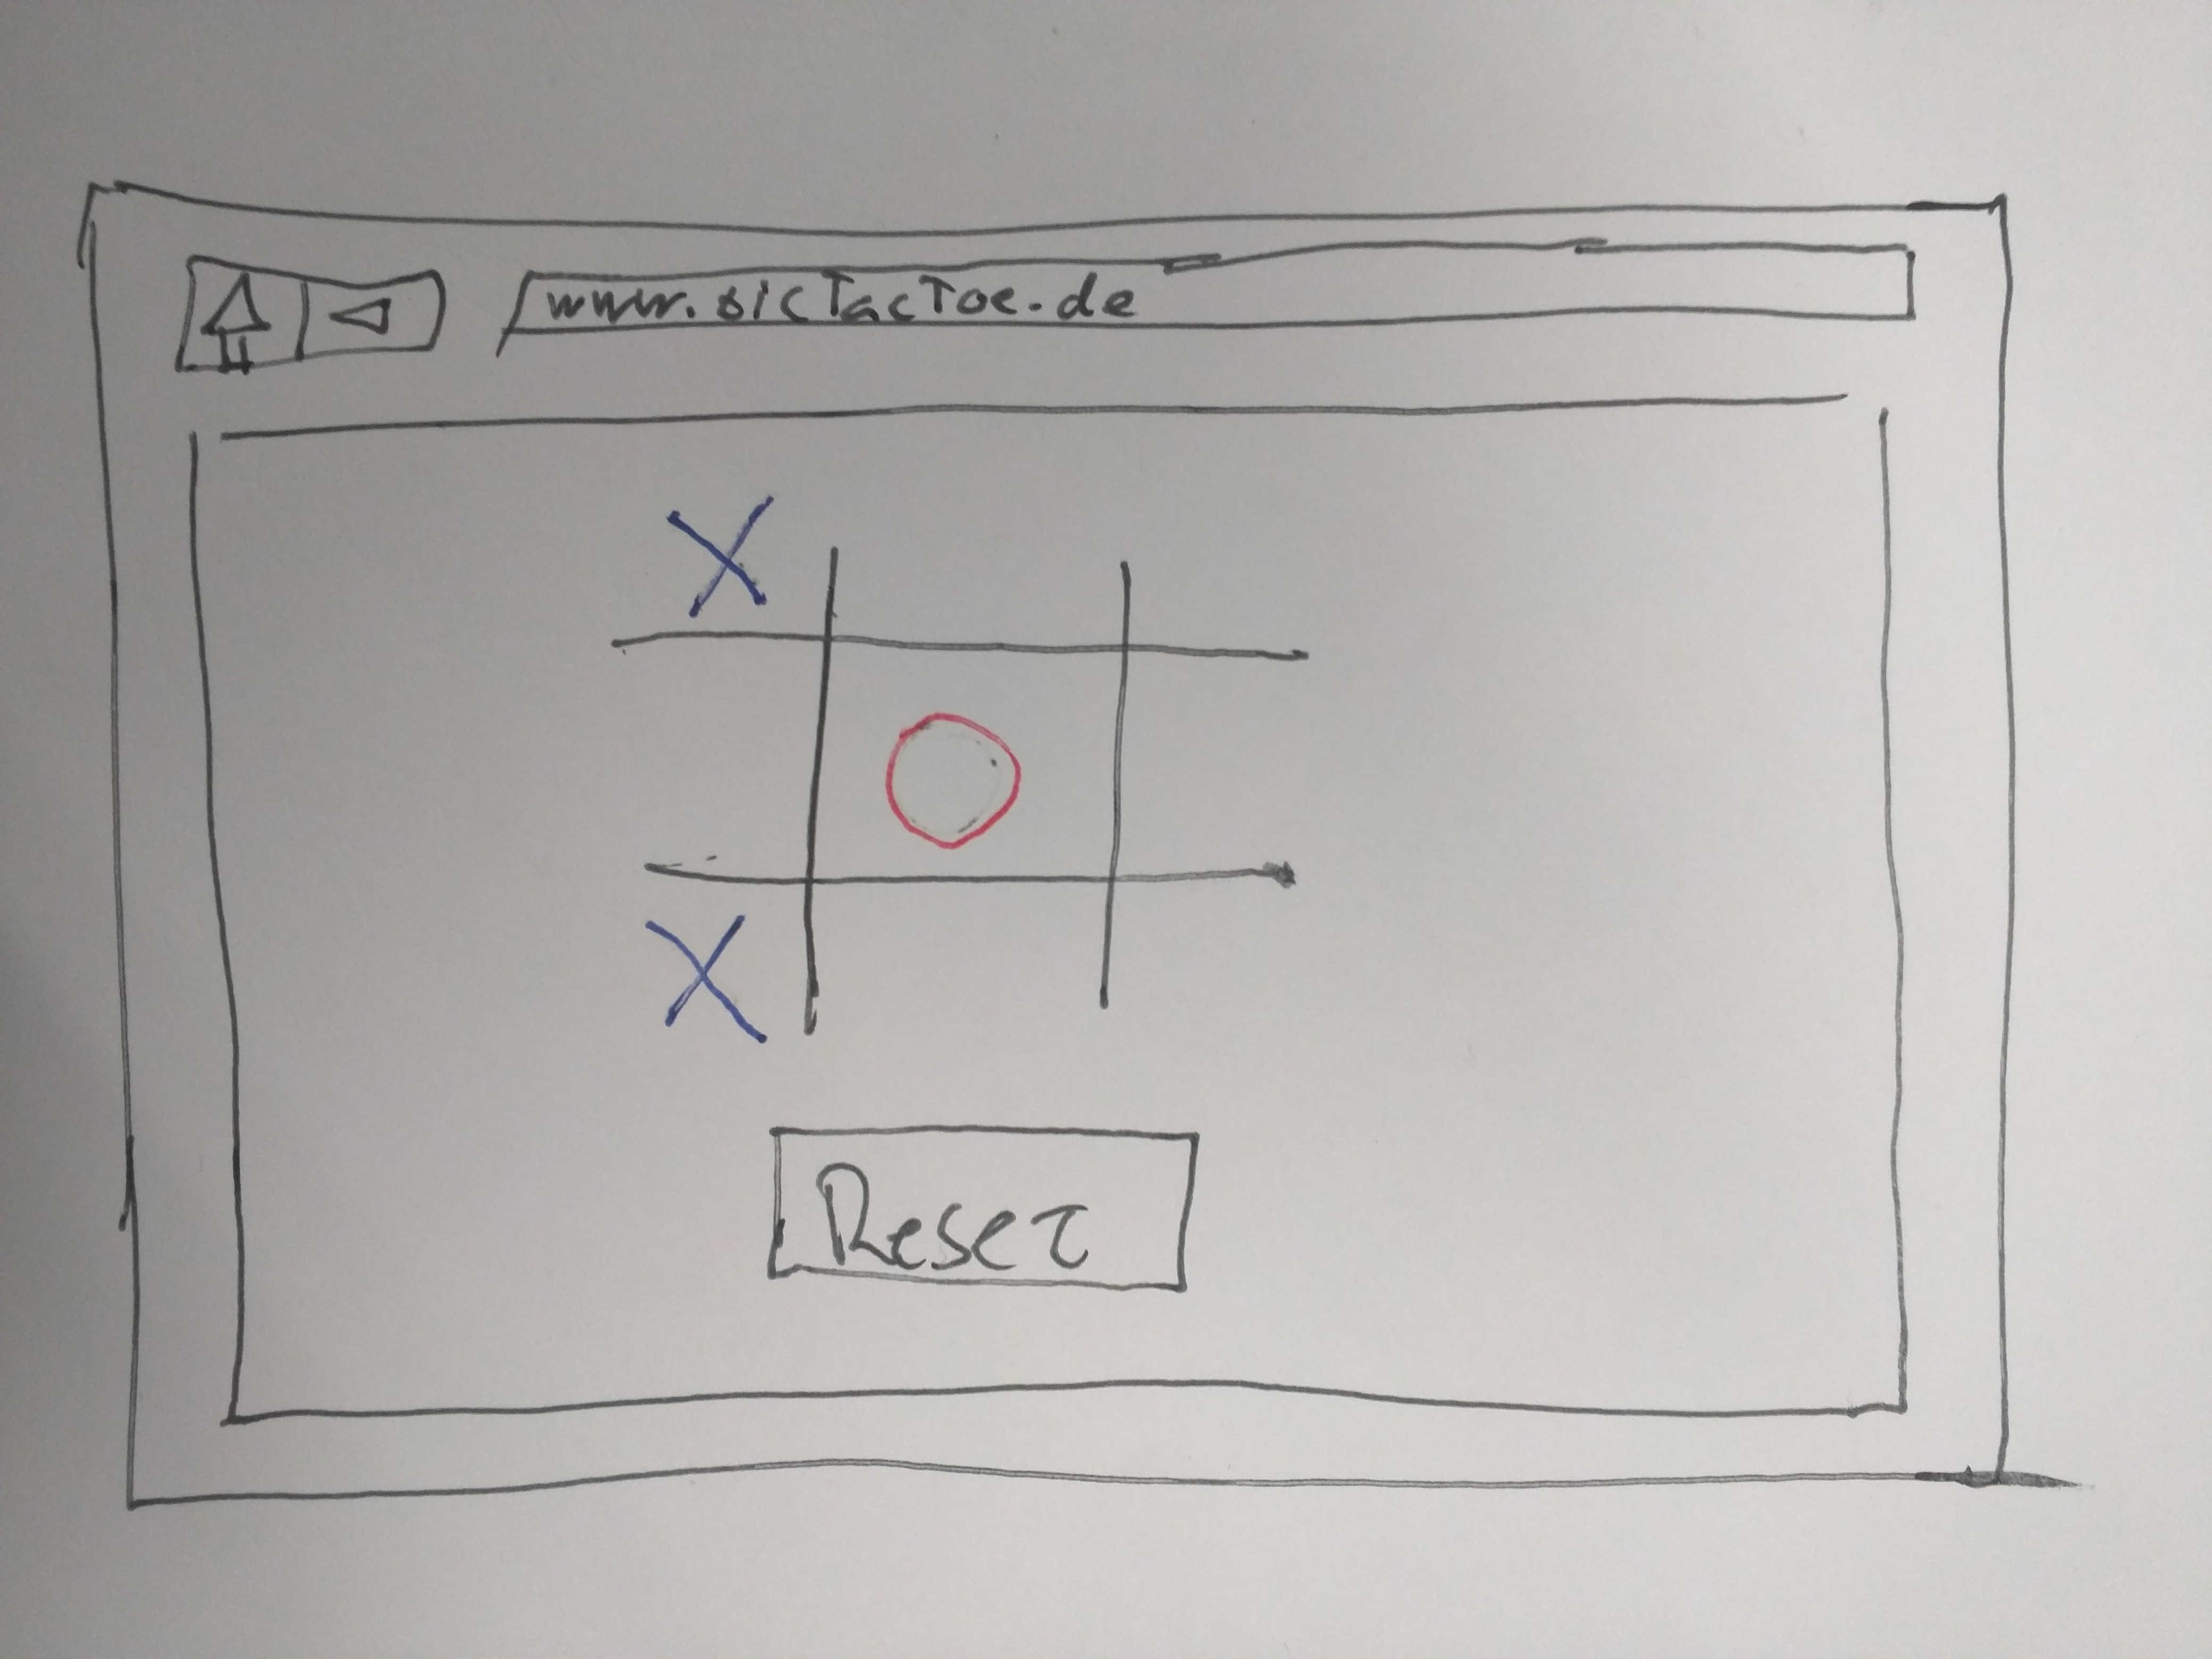 www.sicTacToe.de
X
O
X
Reset